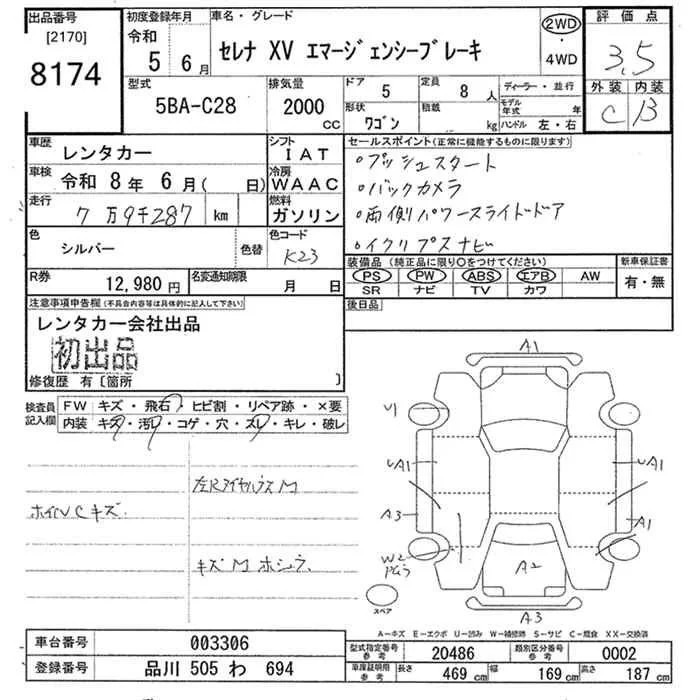 出品番号
[2170]
8174
初度登録年月
令和
5 6月
車名・グレード
セレナ XV エマージェンシーブレーキ
2WD
・
4WD
評価点
3,5
外装 内装
C B
型式
5BA-C28
排気量
2000
CC
ドア
5
形状
ワゴン
定員
8 人
積載
kg
ディーラー・並行
モデル年式 年
ハンドル 左・右
車歴
レンタカー
シフト
IAT
車検
令和 8年 6月( 日)
冷房
WAAC
走行
7万9千287 km
燃料
ガソリン
色
シルバー
色替
色コード
K23
R券
12,980 円
名変通知期限
月 日
セールスポイント(正常に機能するものに限ります)
○プッシュスタート
○バックカメラ
○両側パワースライドドア
○イクリプスナビ
装備品(純正品に限り○をつけてください)
PS PW ABS エアB AW
SR ナビ TV カワ
新車保証書
有・無
後日品
注意事項申告欄(不具合内容等は具体的に記入して下さい)
レンタカー会社出品
初出品
修復歴 有〔箇所 〕
検査員
記入欄
FW キズ・飛石・ヒビ割・リペア跡・×要
内装 キズ・汚レ・コゲ・穴・スレ・キレ・破レ
ホイルCキズ
キズM ホシュラ
A1
U1
UA1
UA1
A3
A1
W2
A2
A3
スペア
A―キズ E―エクボ U―凹み W―補修跡 S―サビ C―腐食 XX―交換済
車台番号
003306
登録番号
品川 505 わ 694
型式指定番号
参考
20486
類別区分番号
参考
0002
車庫証明用
参考
長さ
469 cm
幅
169 cm
高さ
187 cm